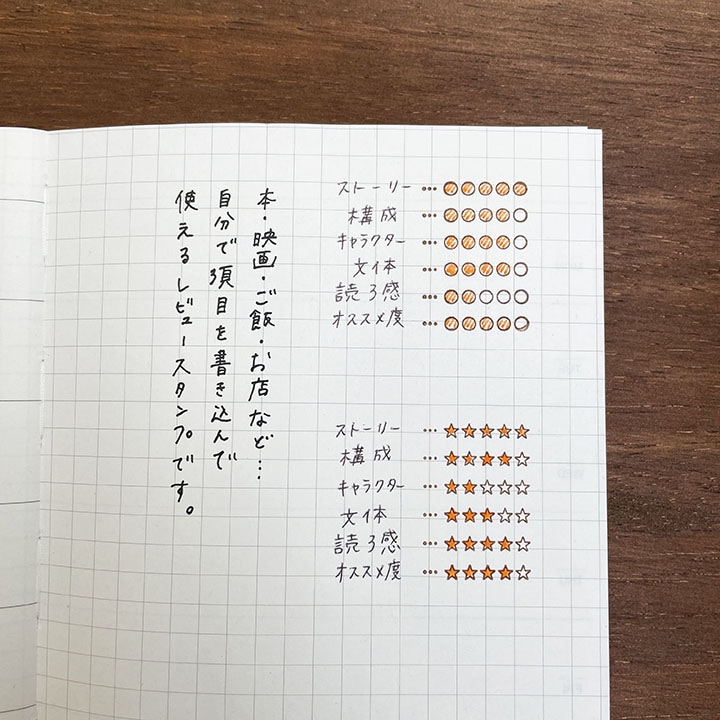 本・映画・ご飯・お店など…
自分で項目を書き込んで
使えるレビュースタンプです。
ストーリー …
構成 …
キャラクター …
文体 …
読了感 …
オススメ度 …
ストーリー …
構成 …
キャラクター …
文体 …
読了感 …
オススメ度 …